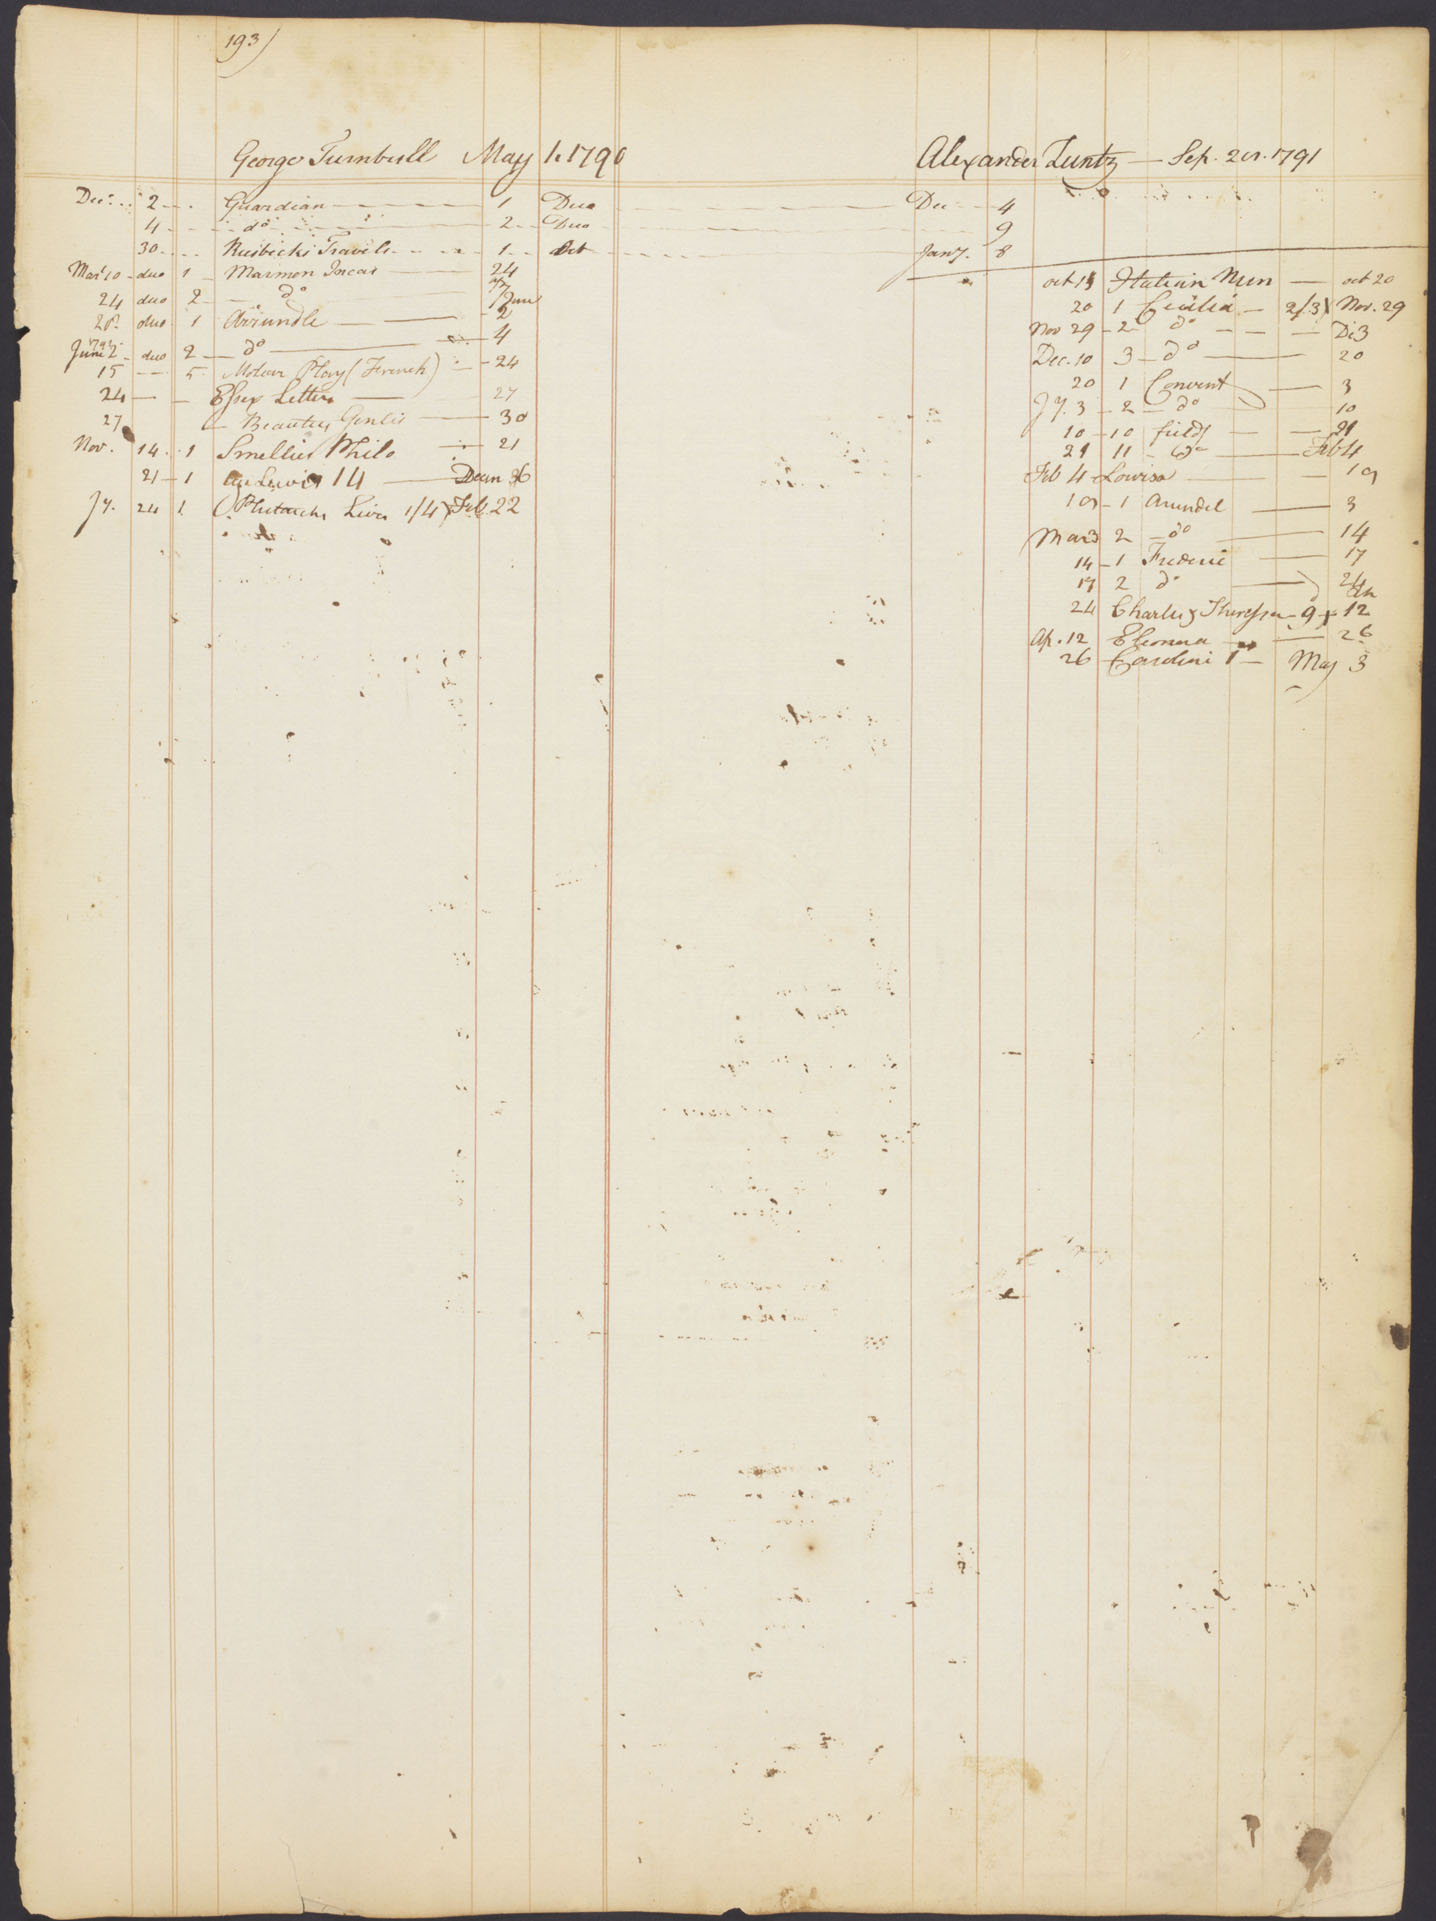 193)
George Turnbull May 1. 1790
Dec. 2 Guardian 1 Duo Dec 4
4 do 2 Duo 9
30 Busbecks Travels 1 Oct Jany. 8
Mar 10 duo 1 Marmon Incas 24
24 duo 2 do June
28 duo 1 Arrundle 2
June 2 duo 2 do 4
15 5 Moliere Play (French) 24
24 Essex Letters 27
27 Beauties Genlis 30
Nov. 14 1 Smellies Philo 21
21 1 14 Decem 6
Jy. 24 1 Plutarchs Lives 1/4 Feb 22
Alexander Zuntz Sep. 20. 1791
oct 15 Italian Nun oct 20
20 1 Cecilia 2/3 Nov. 29
Nov 29 2 do De 3
Dec. 10 3 do 20
20 1 Convent 3
Jy. 3 2 do 10
10 10 field 21
21 11 do Feb 4
Feb 4 Lowisa 10
10 1 Arundel 3
Mar 3 2 do 14
14 1 Frederic 17
17 2 do 24
24 Charles & Theressa 9 12
Ap. 12 Eleonora 26
26 Caroline 1 May 3